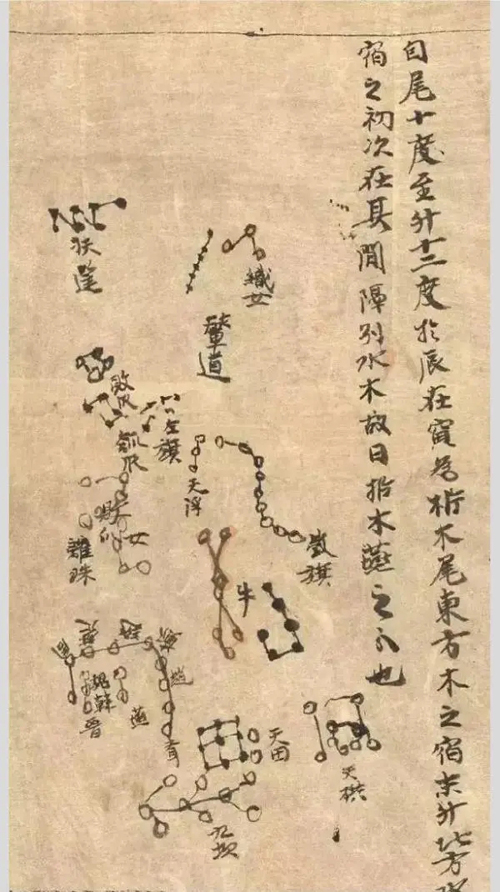 自尾十度至斗十二度於辰在寅為析木尾東方木之宿末斗北方水
宿之初次在其間隔別水木故曰析木燕之分也
織女
輦道
扶筐
敗瓜
左旗
瓠瓜
天浮
旗
女
離珠
牛
趙
魏
韓
晉
燕
天田
九坎